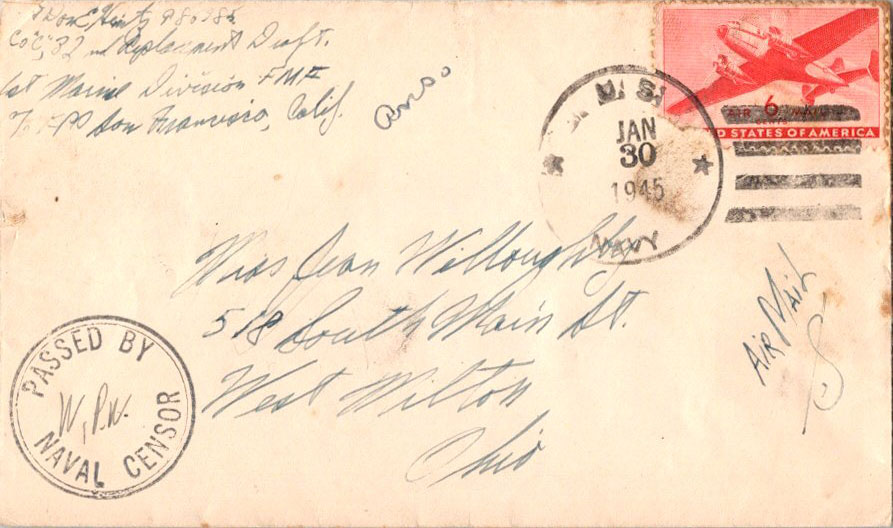 Co "C", 32nd Replacement Draft.
1st Marine Division FMF
℅ FPO San Francisco, Calif.
U. S.
JAN
30
1945
NAVY
AIR 6 MAIL
CENTS
D STATES OF AMERICA
Miss Jean Willoughby
518 South Main St.
West Milton
Ohio
AIR MAIL
PASSED BY
W.P.W.
NAVAL CENSOR